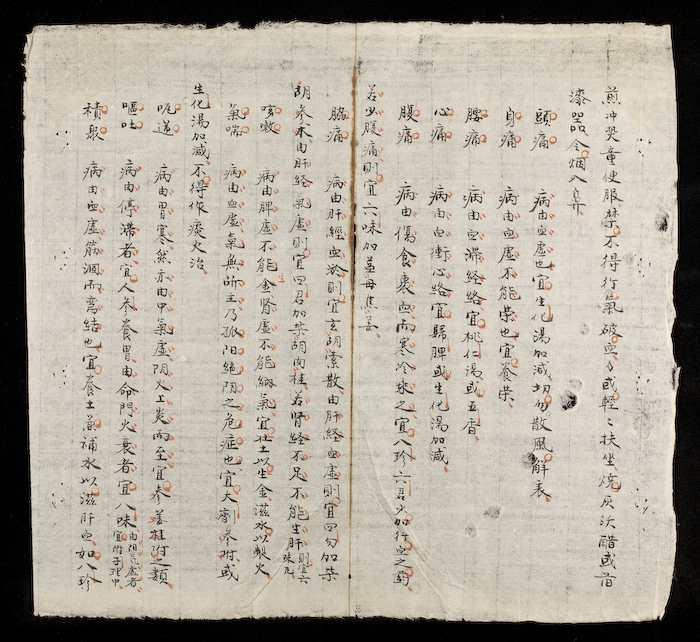 煎冲熱童便服禁不得行氣破血乃或輕〻扶坐燒灰沃醋或旧
漆器令烟入鼻
頭痛 病由血虛也宜生化湯加減切勿散風解表
身痛 病由血虛不能榮也宜養榮
腰痛 病由血滞経絡宜桃仁湯或五香
心痛 病由血衝心絡宜歸脾或生化湯加減
腹痛 病由傷食裹血而寒冷乘之宜八珍六君少加行血之剤
若少腹痛則宜六味加益母焦姜
脇痛 病由肝經血淤則宜玄胡索散由肝経血虛則宜四勿加柴
胡參朮由肝経氣虛則宜四君加柴胡肉桂若肾経不足不能生肝則宜六味丸
咳嗽 病由脾虛不能金肾虛不能納氣宜壯土以生金滋水以制火
氣喘 病由血虛氣無所主乃孤阳絶阴之危症也宜大劑參附或
生化湯加减不得作痰火治
呃逆 病由胃寒然亦由中氣虛阴火上炎而至宜參姜桂附之類
嘔吐 病由停滞者宜人參養胃由命門火衰者宜八味由阳虛者宜附子理中
積聚 病由血虛筋涸而弯結也宜養土兼補水以滋肝血如八珍